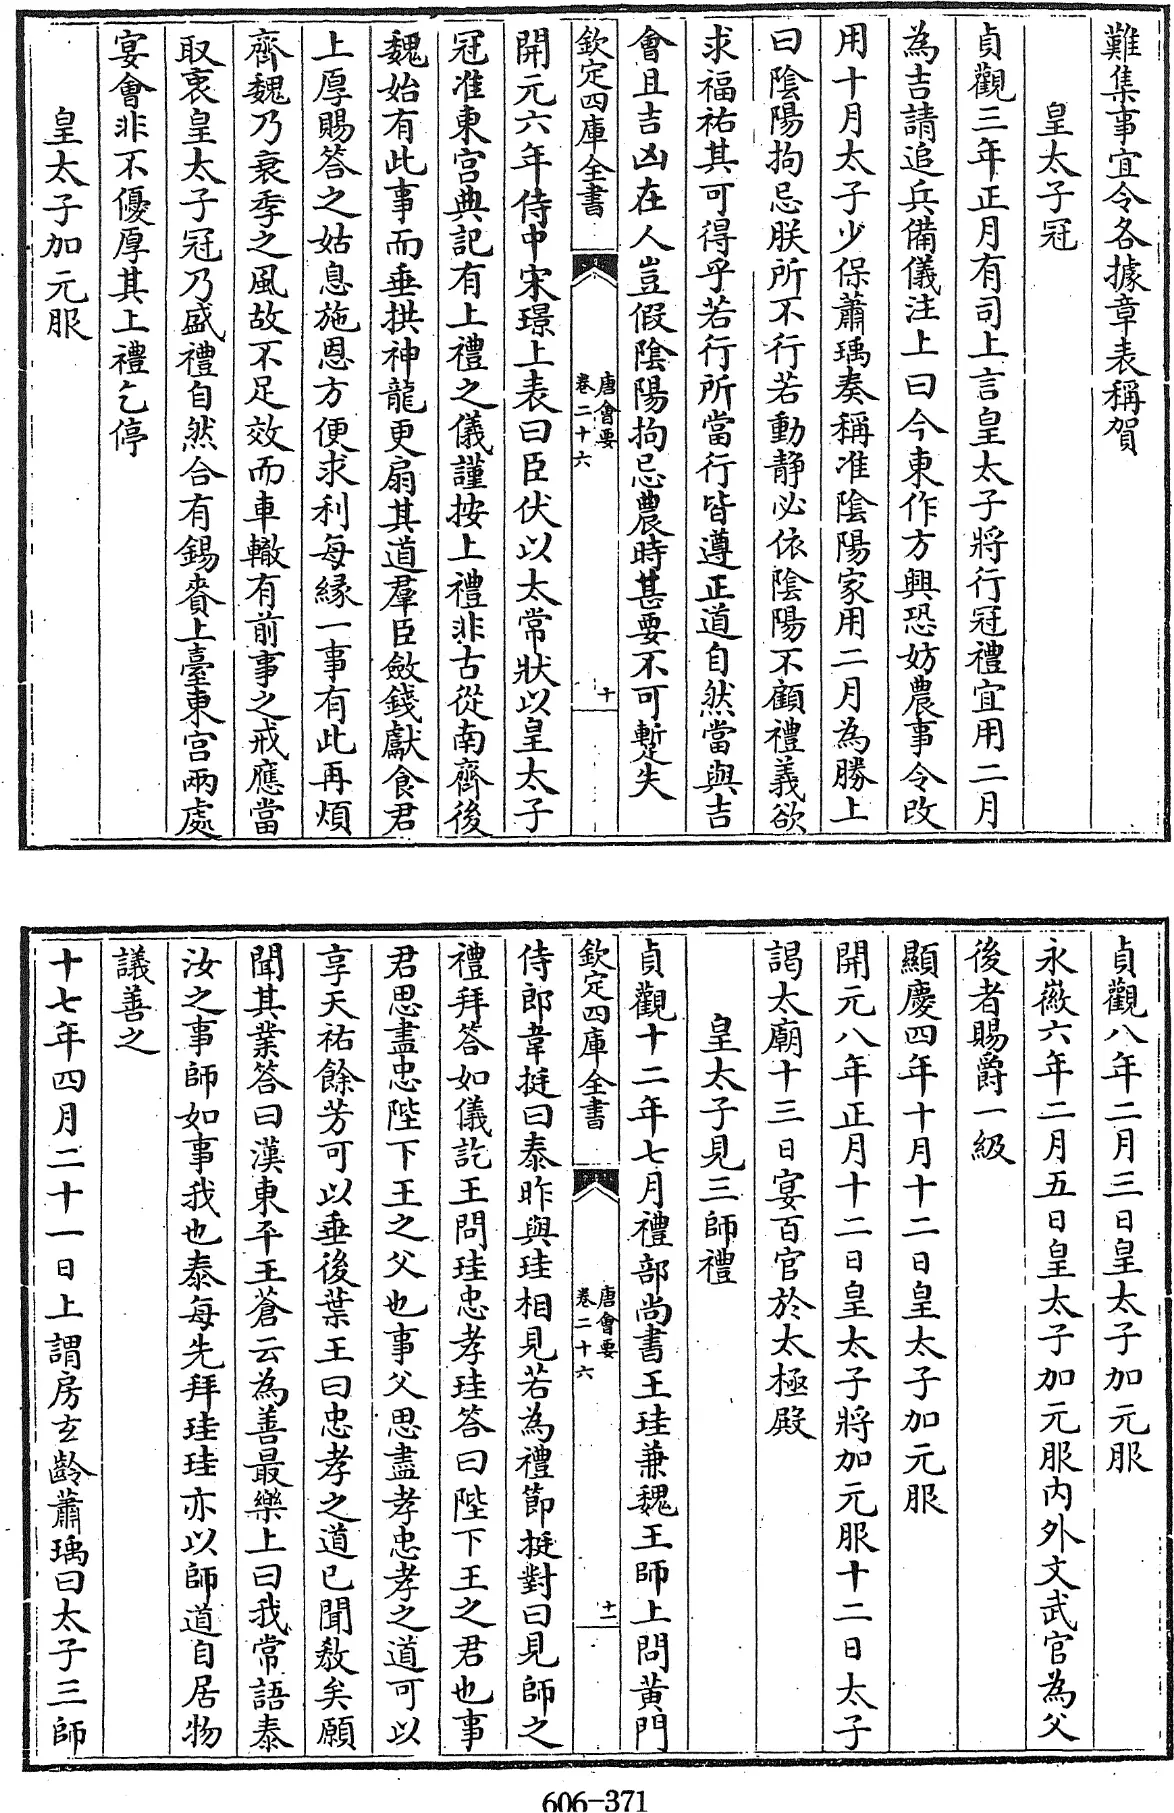 難集事宜令各據章表稱賀
皇太子冠
貞觀三年正月有司上言皇太子將行冠禮宜用二月
為吉請追兵備儀注上曰今東作方興恐妨農事令改
用十月太子少保蕭瑀奏稱准陰陽家用二月為勝上
曰陰陽拘忌朕所不行若動靜必依陰陽不顧禮義欲
求福祐其可得乎若行所當行皆遵正道自然當與吉
會且吉凶在人豈假陰陽拘忌農時甚要不可暫失
欽定四庫全書
唐會要
卷二十六
十
開元六年侍中宋璟上表曰臣伏以太常狀以皇太子
冠准東宮典記有上禮之儀謹按上禮非古從南齊後
魏始有此事而垂拱神龍更扇其道羣臣斂錢獻食君
上厚賜答之姑息施恩方便求利每緣一事有此再煩
齊魏乃衰季之風故不足效而車轍有前事之戒應當
取衷皇太子冠乃盛禮自然合有錫賚上臺東宮兩處
宴會非不優厚其上禮乞停
皇太子加元服
貞觀八年二月三日皇太子加元服
永徽六年二月五日皇太子加元服內外文武官為父
後者賜爵一級
顯慶四年十月十二日皇太子加元服
開元八年正月十二日皇太子將加元服十二日太子
謁太廟十三日宴百官於太極殿
皇太子見三師禮
貞觀十二年七月禮部尚書王珪兼魏王師上問黃門
欽定四庫全書
唐會要
卷二十六
十一
侍郎韋挺曰泰昨與珪相見若為禮節挺對曰見師之
禮拜答如儀訖王問珪忠孝珪答曰陛下王之君也事
君思盡忠陛下王之父也事父思盡孝忠孝之道可以
享天祐餘芳可以垂後葉王曰忠孝之道已聞教矣願
聞其業答曰漢東平王蒼云為善最樂上曰我常語泰
汝之事師如事我也泰每先拜珪珪亦以師道自居物
議善之
十七年四月二十一日上謂房玄齡蕭瑀曰太子三師
606-371